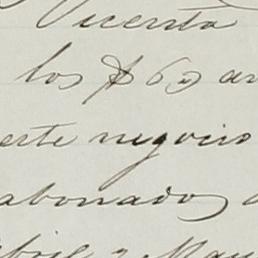 Vicenta
los $60 an
erte negocio
abonados
Abril y May